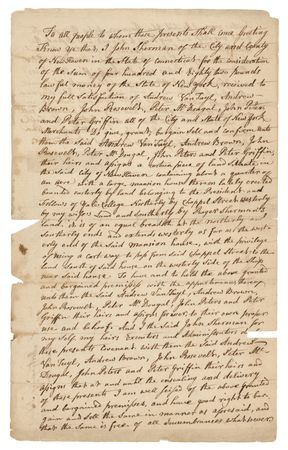 To all people to whom these presents Shall come Greeting
Know ye that I John Sherman of the City and County
of New Haven in the State of Connecticut for the consideration
of the Sum of four hundred and Eighty two pounds
lawful money of the State of New York, received to
my full Satisfaction of Andrew VanTuyl, Andrew
Brown, John Roosevelt, Peter Mc Dougal, John Peters
and Peter Griffin all of the City and State of New York
Merchants Do give, grant, bargain Sell and confirm unto
them the Said Andrew VanTuyl, Andrew Brown, John
Roosevelt, Peter Mc Dougal, John Peters and Peter Griffin,
their heirs and assigns a certain piece of land Situate in
the Said City of New Haven containing about a quarter of
an acre with a large mansion house thereon lately erected
bounded easterly by land belonging to the President and
Fellows of Yale College Northerly by Chappel Street westerly
by my other land and Southerly by
land, it is of an equal breadth in the northerly and
Southerly ends and extends westerly as far as the west
erly end of the Said mansion house, with the privilege
of using a cart way to pass from Said Chappel Street to the
land South of Said house on the westerly Side of the
near Said house. To have and to hold the above granted
and bargained premises with the appurtenances thereof
unto them the Said Andrew VanTuyl, Andrew Brown
John Roosevelt, Peter Mc Dougal, John Peters and Peter
Griffin their heirs and assigns forever to their own proper
use and behoof. And I the Said John Sherman for
my Self my heirs Executors and Administrators do by
these presents Covenant with them the Said Andrew
VanTuyl, Andrew Brown, John Roosevelt, Peter Mc
Dougal, John Peters and Peter Griffin their heirs and
assigns that at and until the ensealing and delivery
of these presents I am well seized of the above granted
and bargained premises, and have good right to bar-
gain and Sell the Same in manner as aforesaid, and
that the Same is free of all Incumbrances whatsoever